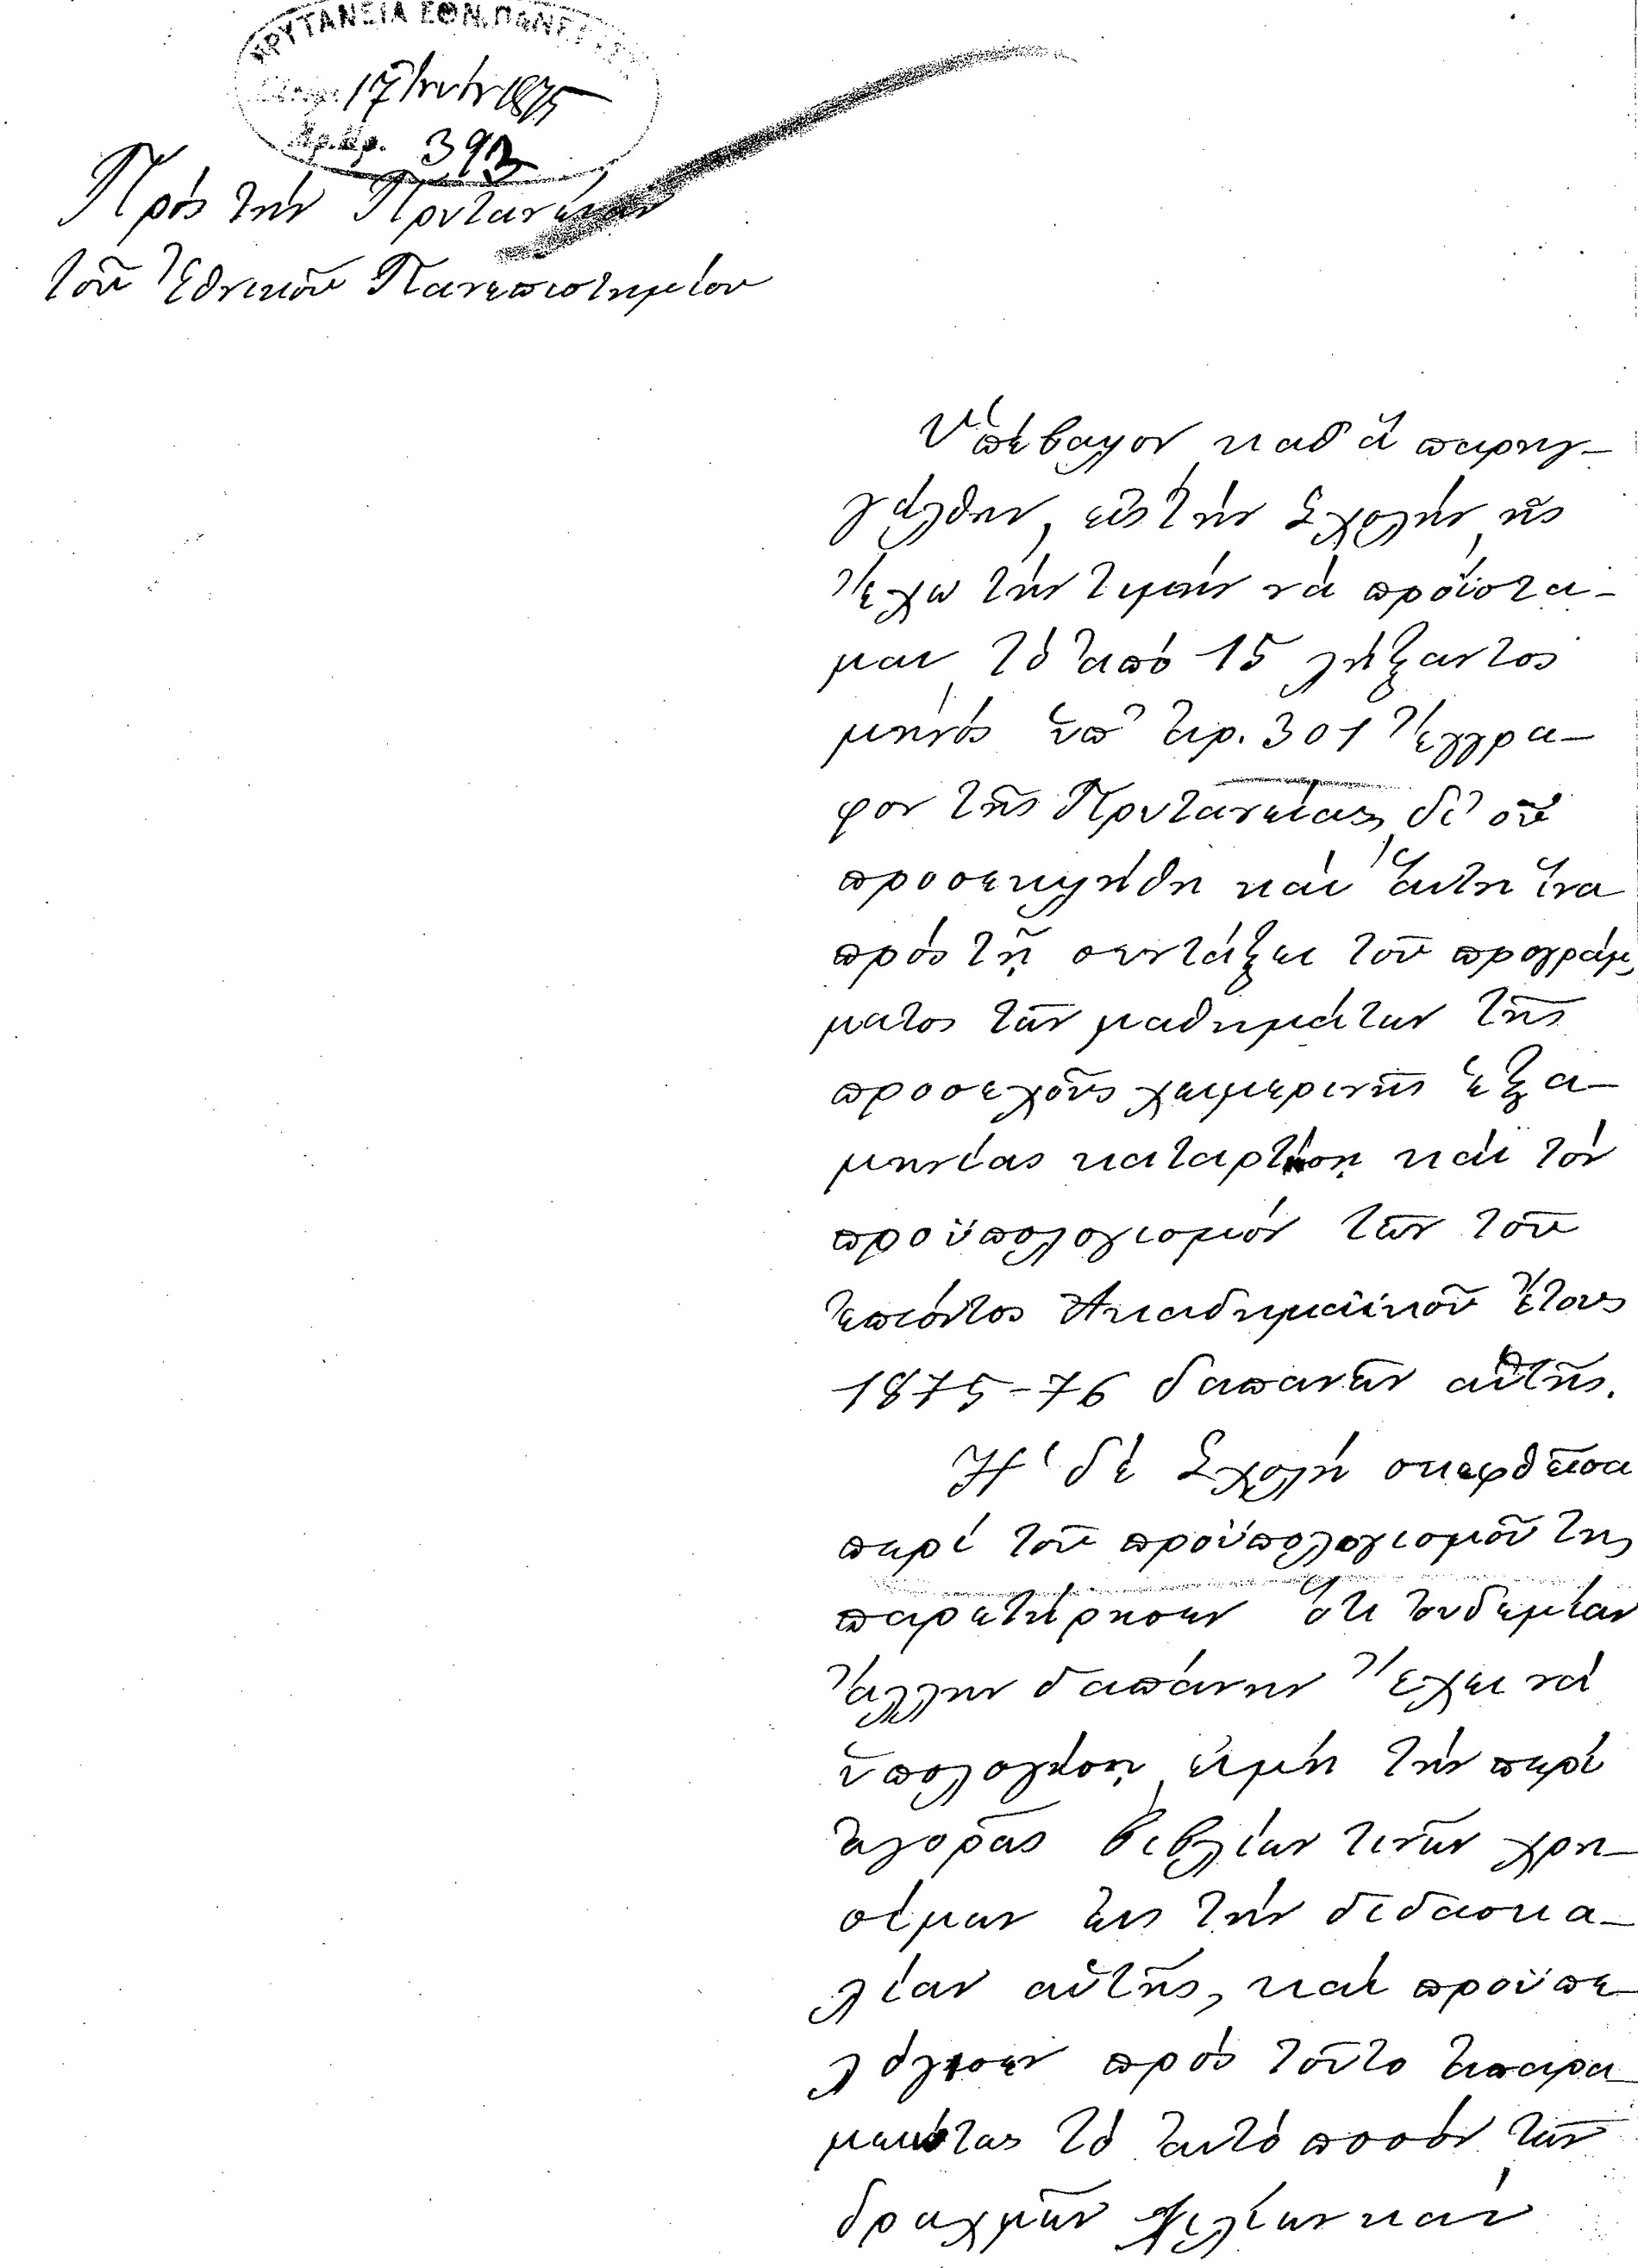 ΠΡΥΤΑΝΕΙΑ ΕΘΝ. ΠΑΝΕΠΙΣΤ
17 1875
Αρ. Πρ. 393
Πρὸς τὴν Πρυτανείαν
τοῦ Ἐθνικοῦ Πανεπιστημίου
Ὑπέβαλον καθ' ἃ παρηγ-
γέλθην, εἰς τὴν Σχολὴν, ἧς
ἔχω τὴν τιμὴν νὰ προΐστα-
μαι, τὸ ἀπὸ 15 λήξαντος
μηνὸς ὑπ' ἀρ. 301 ἔγγρα-
φον τῆς Πρυτανείας, δι' οὗ
προσεκλήθη καὶ αὕτη ἵνα
πρὸς τῇ συντάξει τοῦ προγράμ-
ματος τῶν μαθημάτων τῆς
προσεχοῦς χειμερινῆς ἑξα-
μηνίας καταρτίσῃ καὶ τὸν
προϋπολογισμὸν τῶν τοῦ
ἐπιόντος Ἀκαδημαϊκοῦ ἔτους
1875-76 δαπανῶν αὑτῆς.
Ἡ δὲ Σχολὴ σκεφθεῖσα
περὶ τοῦ προϋπολογισμοῦ της
παρετήρησεν ὅτι οὐδεμίαν
ἄλλην δαπάνην ἔχει νὰ
ὑπολογήσῃ, εἰμὴ τὴν περὶ
ἀγορᾶς βιβλίων τινῶν χρη-
σίμων εἰς τὴν διδασκα-
λίαν αὑτῆς, καὶ προϋπε-
λόγισεν πρὸς τοῦτο ἀπαρα-
μειώτως τὸ αὐτὸ ποσὸν τῶν
δραχμῶν χιλίων καὶ